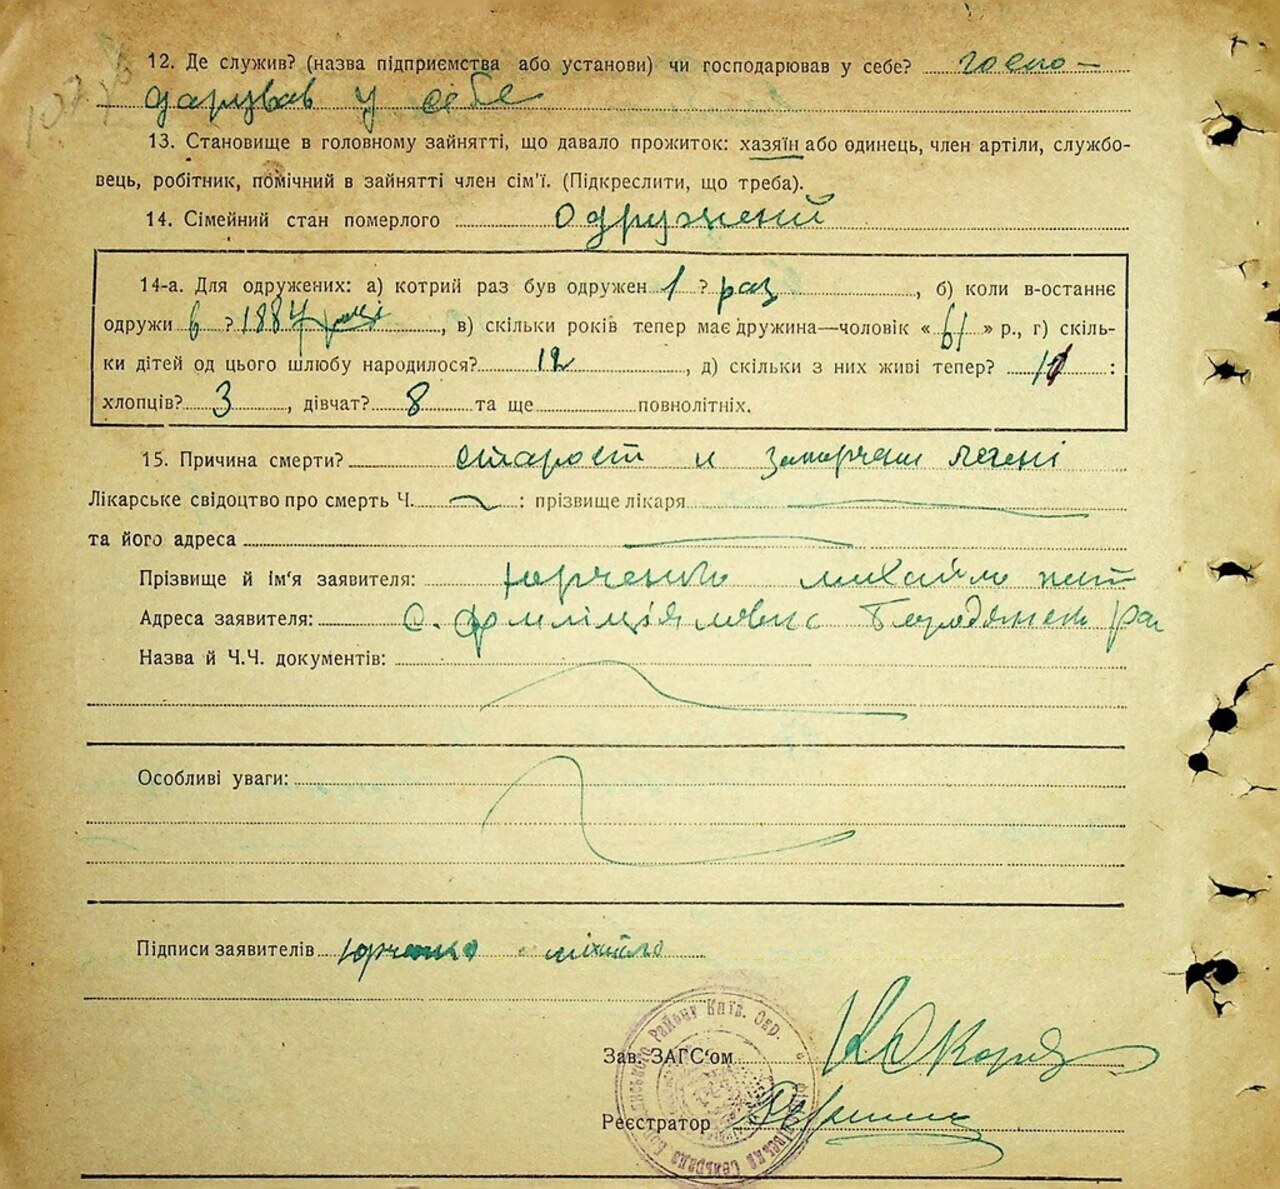 12. Де служив? (назва підприємства або установи) чи господарював у себе? госпо-
дарував у себе
13. Становище в головному зайнятті, що давало прожиток: хазяїн або одинець, член артіли, службо-
вець, робітник, помічний в зайнятті член сім'ї. (Підкреслити, що треба).
14. Сімейний стан померлого одружений
14-а. Для одружених: а) котрий раз був одружен 1 ? раз, б) коли в-останнє
одружи в ? 1884 році, в) скільки років тепер має дружина—чоловік « 61 » р., г) скіль-
ки дітей од цього шлюбу народилося? 12, д) скільки з них живі тепер? 11 :
хлопців? 3, дівчат? 8 та ще повнолітніх.
15. Причина смерти? старост и легені
Лікарське свідоцтво про смерть Ч. : прізвище лікаря
та його адреса
Прізвище й ім'я заявителя: Юрченко михайло
Адреса заявителя: С.
Назва й Ч.Ч. документів:
Особливі уваги:
Підписи заявителів Юрченко міхайло
Району Київ. Окр.
Зав. ЗАГС'ом
Реєстратор
Сельрада